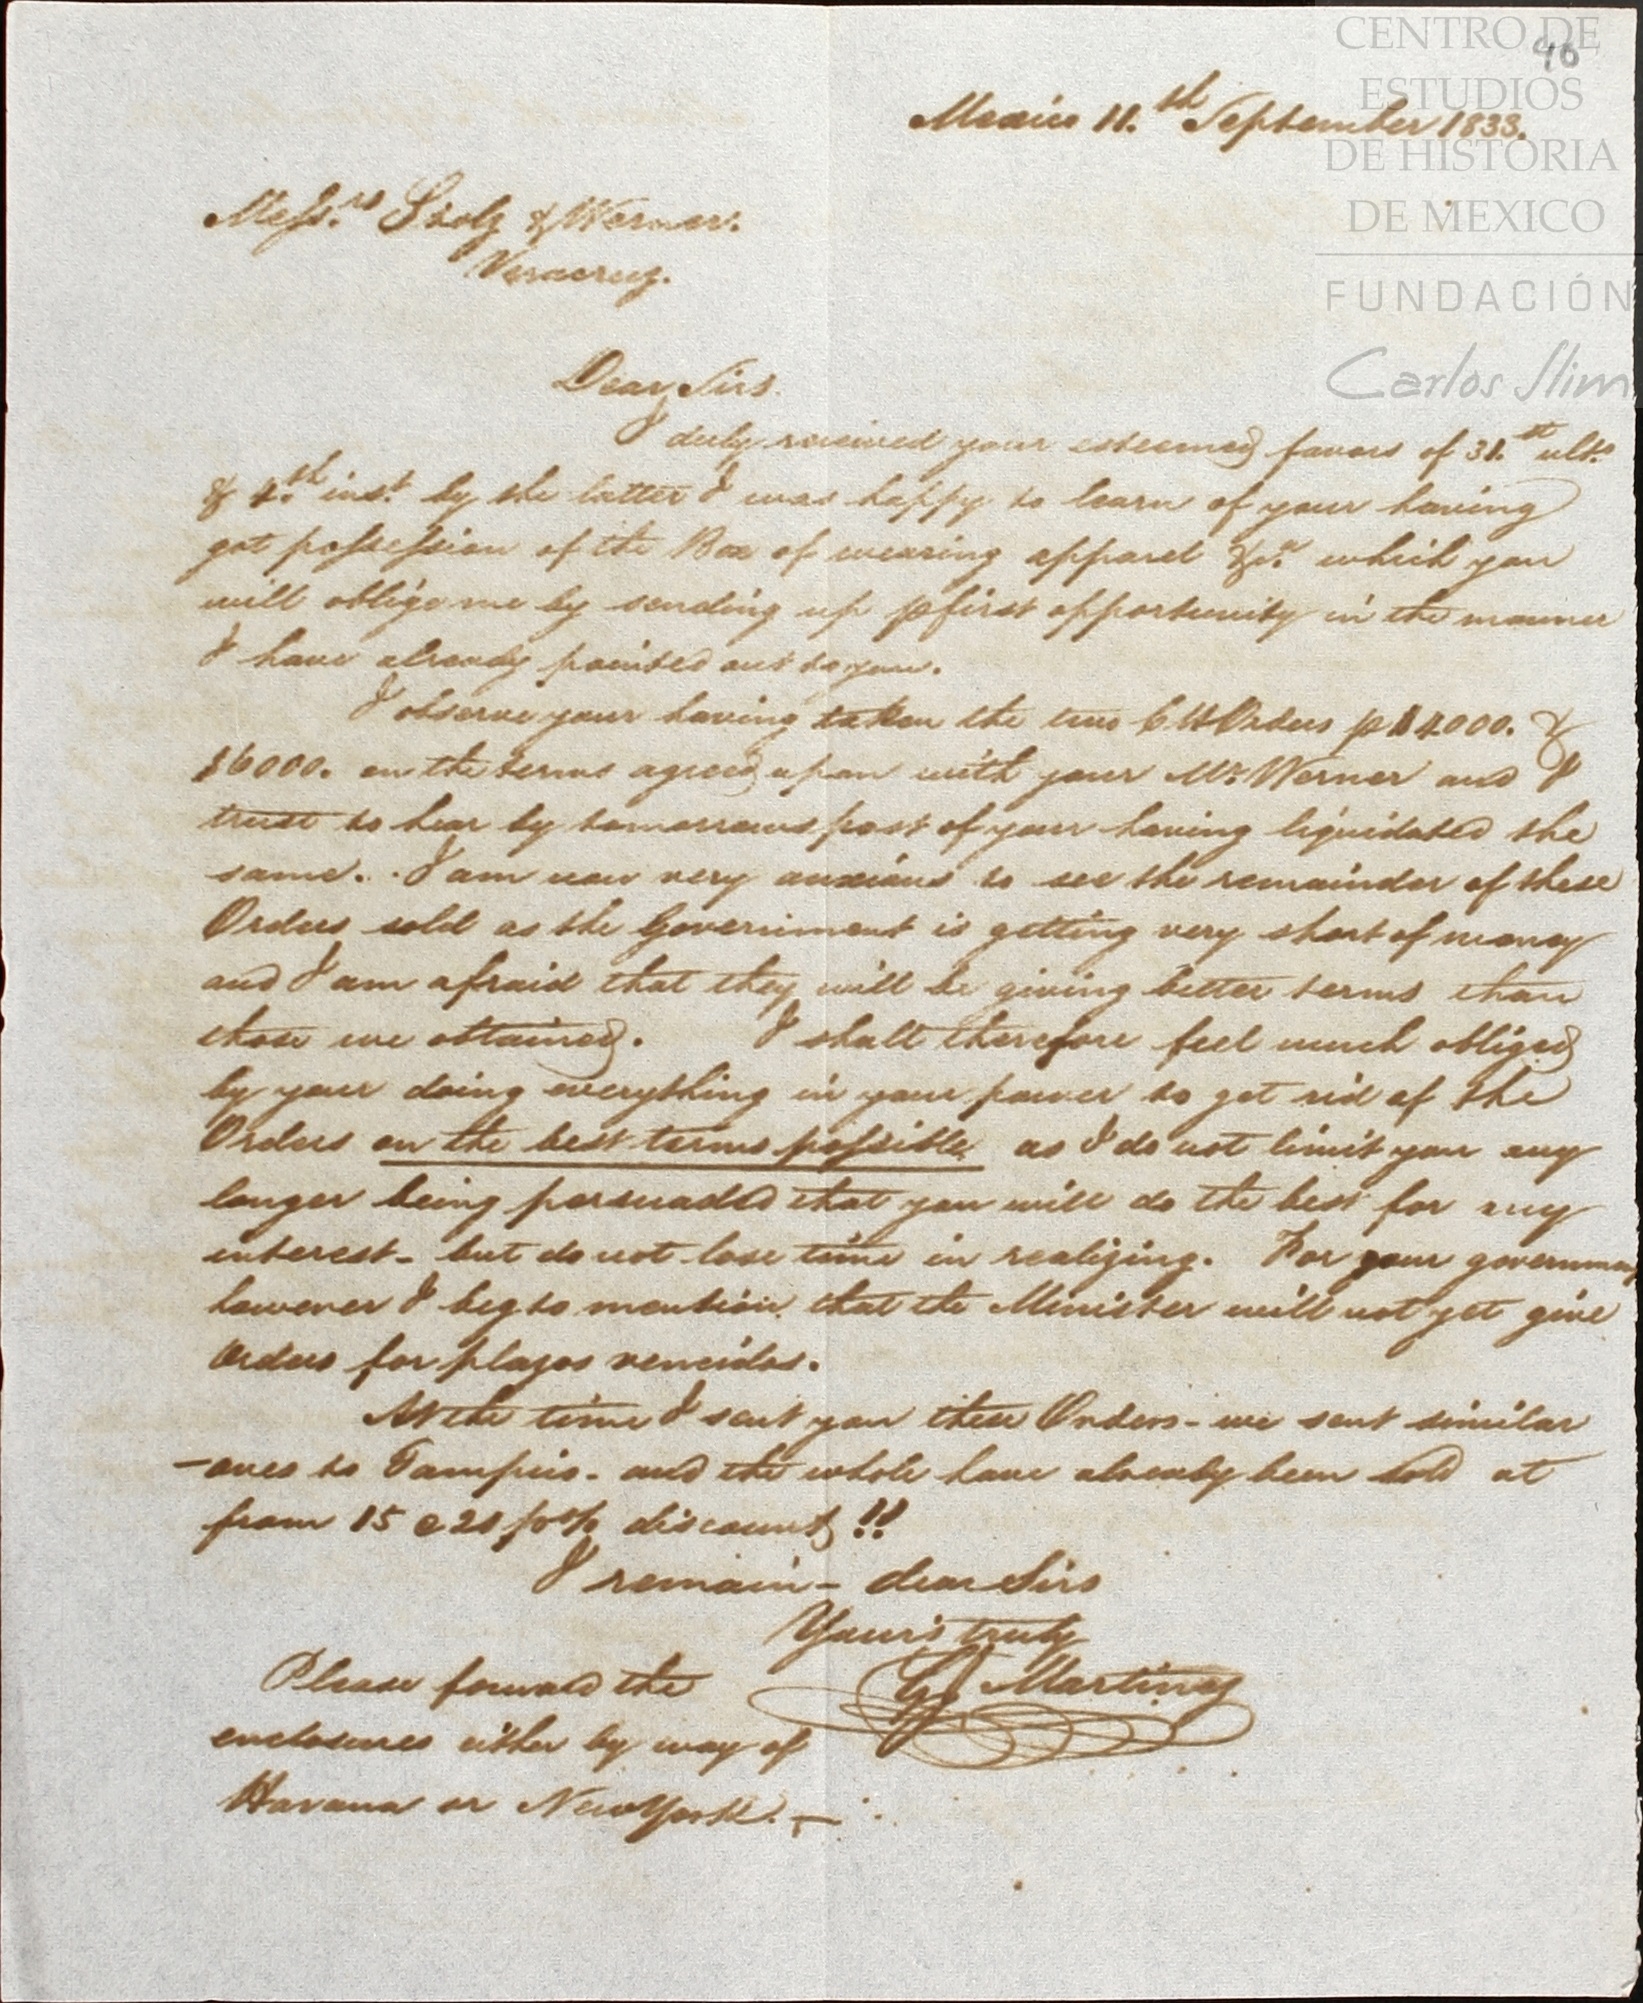 CENTRO DE
ESTUDIOS
DE HISTORIA
DE MEXICO
FUNDACIÓN
Carlos Slim
40
Mexico 11.th September 1833.
Messrs. Stolz & Werner.
Veracruz.
Dear Sirs.
I duly received your esteemed favors of 31.st ulto.
& 4.th inst. by the latter I was happy to learn of your having
got possession of the Box of wearing apparel &c.a which you
will oblige me by sending up p first opportunity in the manner
I have already pointed out to you.
I observe your having taken the two C H Orders p $4000. &
$6000. on the terms agreed upon with your Mr. Werner and I
trust to hear by tomorrows post of your having liquidated the
same. . I am now very anxious to see the remainder of these
Orders sold as the Government is getting very short of money
and I am afraid that they will be giving better terms than
those we obtained. I shall therefore feel much obliged
by your doing everything in your power to get rid of the
Orders on the best terms possible, as I do not limit you any
longer being persuaded that you will do the best for my
interest - but do not lose time in realizing. For your government
however I beg to mention that the Minister will not yet give
Orders for plazos vencidos.
At the time I sent you these Orders - we sent similar
- ones to Tampico - and the whole have already been sold at
from 15 @ 20 p% discount!!
I remain - dear Sirs
Yours truly
G Martinez
Please forward the
enclosures either by way of
Havana or New York. -